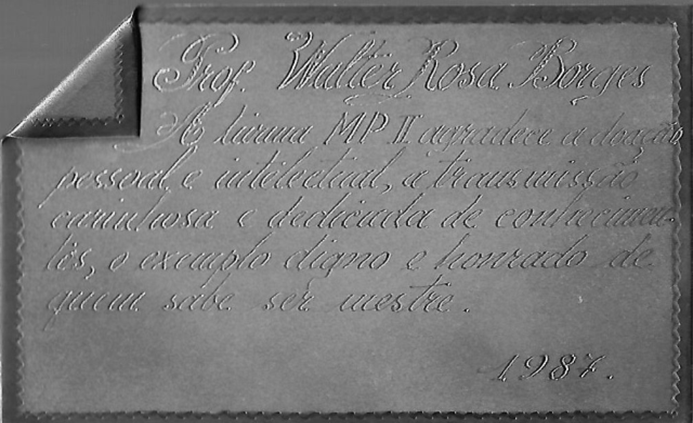 Prof. Walter Rosa Borges
A turma MP II agradece a doação
pessoal e intelectual, a transmissão
carinhosa e dedicada de conhecimen-
tos, o exemplo digno e honrado de
quem sabe ser mestre.
1987.